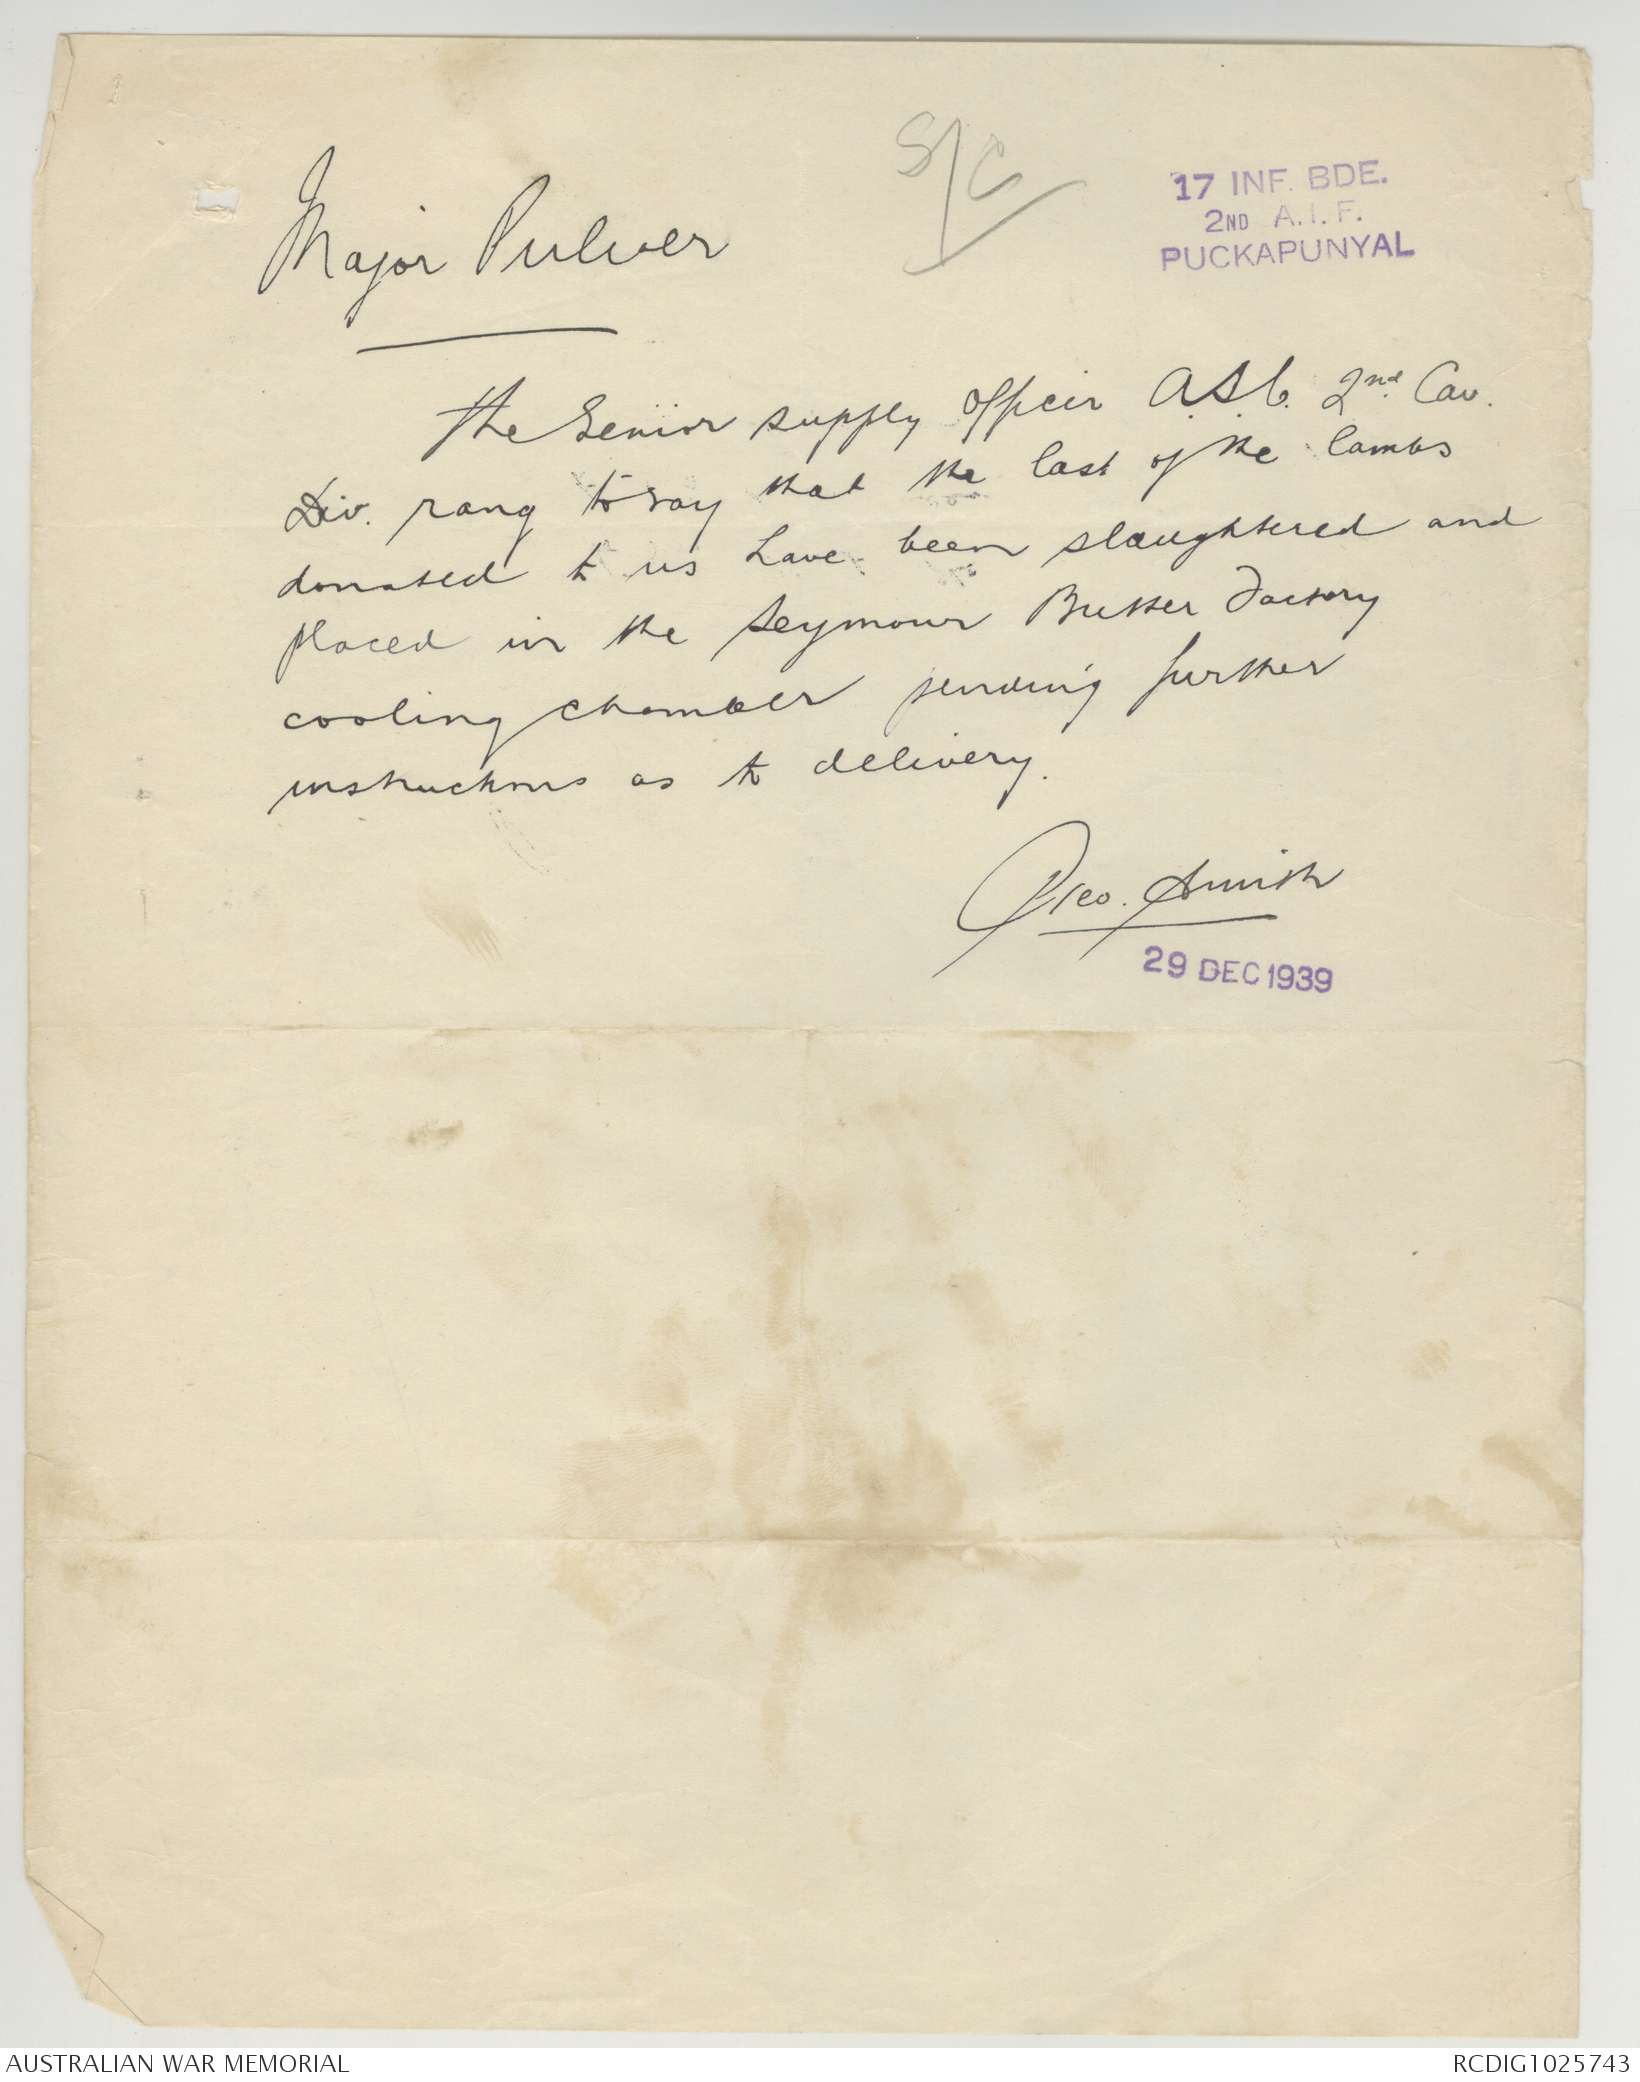 S/C
17 INF. BDE.
2ND A.I.F.
PUCKAPUNYAL
Major Pulver
The Senior supply officer A.S.C. 2nd. Cav.
Div. rang to say that the last of the lambs
donated to us have been slaughtered and
placed in the Seymour Butter Factory
cooling chamber pending further
instructions as to delivery.
Geo. Smith
29 DEC 1939
AUSTRALIAN WAR MEMORIAL
RCDIG1025743